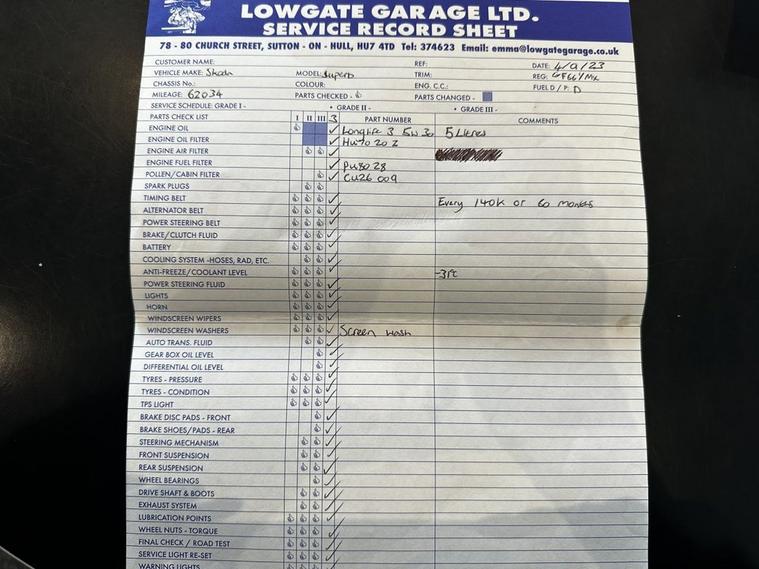 LOWGATE GARAGE LTD.
SERVICE RECORD SHEET
78 - 80 CHURCH STREET, SUTTON - ON - HULL, HU7 4TD Tel: 374623 Email: emma@lowgategarage.co.uk
CUSTOMER NAME: REF: DATE: 4/9/23
VEHICLE MAKE: Skoda MODEL: Superb TRIM: REG:
CHASSIS No.: COLOUR: ENG. C.C.: FUEL D / P: D
MILEAGE: 62034 PARTS CHECKED - PARTS CHANGED -
SERVICE SCHEDULE: GRADE I - • GRADE II - • GRADE III -
PARTS CHECK LIST I II III 3 PART NUMBER COMMENTS
ENGINE OIL ✓ Longlife 3 5w30 5 Litres
ENGINE OIL FILTER ✓
ENGINE AIR FILTER
ENGINE FUEL FILTER ✓ PU8028
POLLEN/CABIN FILTER ✓ CU26 009
SPARK PLUGS
TIMING BELT ✓ Every 140k or 60 months
ALTERNATOR BELT ✓
POWER STEERING BELT ✓
BRAKE/CLUTCH FLUID ✓
BATTERY ✓
COOLING SYSTEM -HOSES, RAD, ETC. ✓
ANTI-FREEZE/COOLANT LEVEL ✓ -31°c
POWER STEERING FLUID ✓
LIGHTS ✓
HORN ✓
WINDSCREEN WIPERS ✓
WINDSCREEN WASHERS ✓ Screen wash
AUTO TRANS. FLUID ✓
GEAR BOX OIL LEVEL ✓
DIFFERENTIAL OIL LEVEL ✓
TYRES - PRESSURE ✓
TYRES - CONDITION ✓
TPS LIGHT ✓
BRAKE DISC PADS - FRONT ✓
BRAKE SHOES/PADS - REAR ✓
STEERING MECHANISM ✓
FRONT SUSPENSION ✓
REAR SUSPENSION ✓
WHEEL BEARINGS ✓
DRIVE SHAFT & BOOTS ✓
EXHAUST SYSTEM ✓
LUBRICATION POINTS ✓
WHEEL NUTS - TORQUE ✓
FINAL CHECK / ROAD TEST ✓
SERVICE LIGHT RE-SET ✓
WARNING LIGHTS